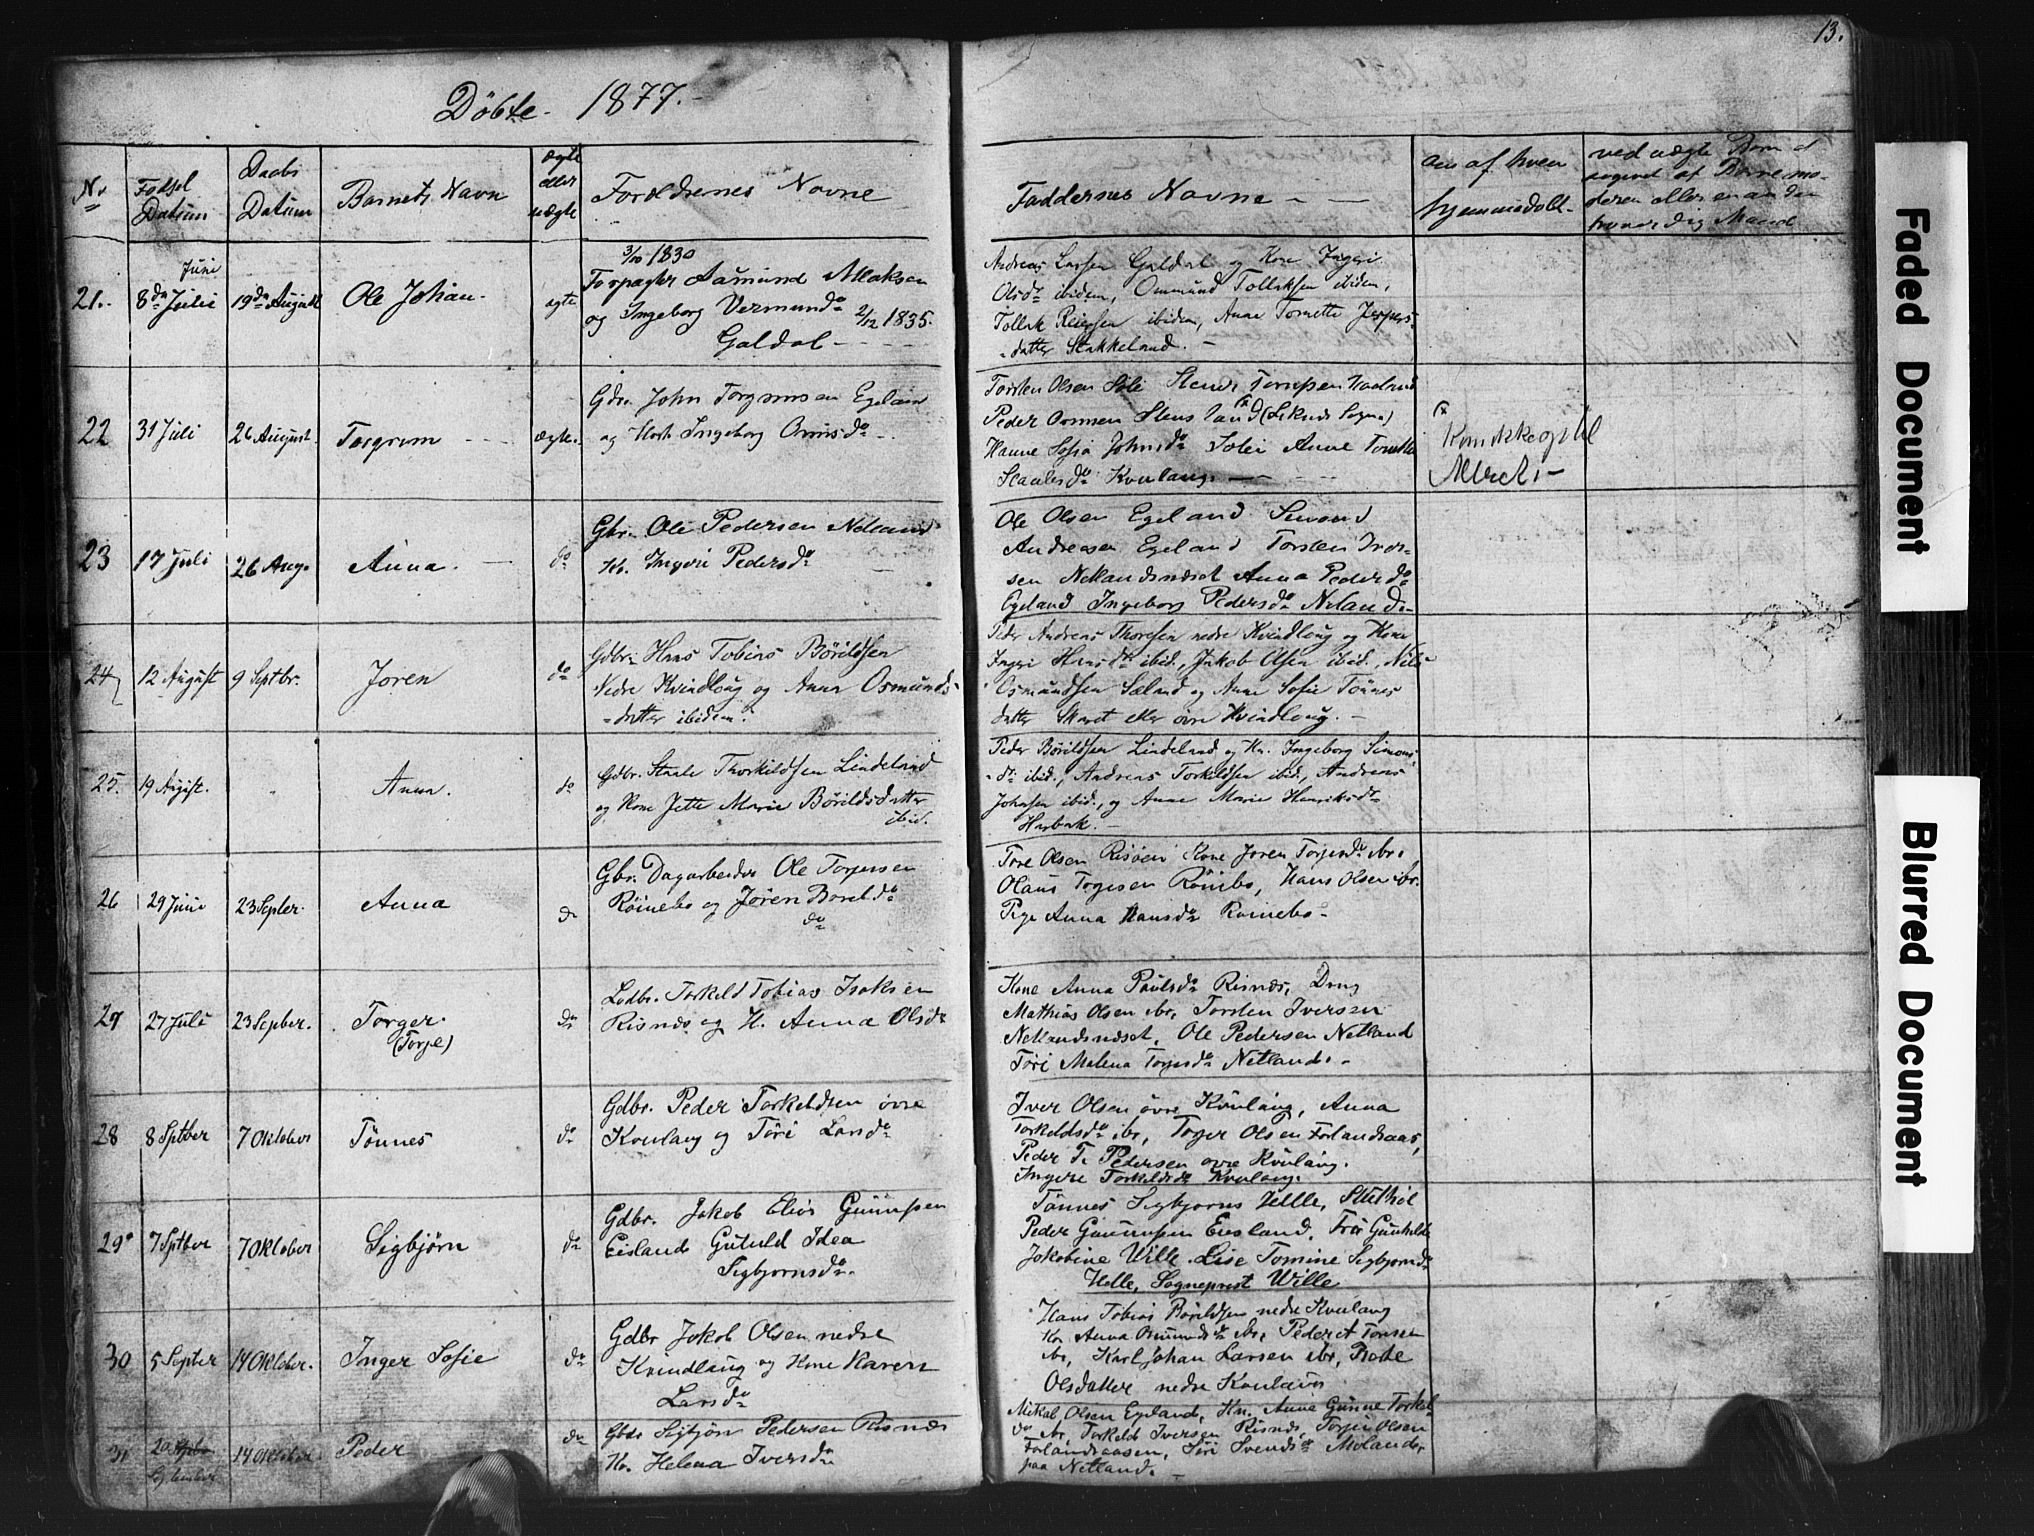 13.
Döbte 1877.
No
Födsel Datum
Daabs Datum
Barnets Navn
ægte eller uægte
Forældrenes Navne
Faddernes Navne
om af hven hjemmedøbt
ved uægte Børn
21. 8de Juli Juni 19de August Ole Johan. ægte
3/10 1830
Forpagter Aamund Allaksen
og Ingeborg Vermundsdr 2/12 1835.
Galdal
Andreas Larsen Galdal og Kone Ingeri
Olsdr ibidem, Ommund Tollaksen ibidem,
Tollak Reiersen ibidem, Anne Tomette Jespers-
datter Stakkeland.
22 31 Juli 26 August Torgrim ægte
Gdr. John Torgrimsen Egeland
og Ingeborg Omsdr
Torsten Olsen
Peder Osmsen
Hanne Sofia Johnsdr Anne Tomette
Staalesdr Kvnlaug
23 17 Juli 26 Aug. Anna. do
Gbr. Ole Pedersen Netland
Kr. Ingeri Pedersdr
Ole Olsen Egeland Sivand
Andreasen Egeland Torsten Iver-
sen Netlandsnæset Anna Pedersdr
Egeland Ingeborg Pedersdr Netland
24 12 August 9 Septbr. Joren do
Gdbr. Hans Tobias Börildsen
Nedre Kvindlaug og Anna Osmunds-
datter ibidem.
Peder Andreas Thoresen nedre Kvindlaug og Kone
Ingeri Hansdr ibid., Jakob Olsen ibid., Nils
Osmundsen Sæland og Anne Sofie Tönnes
datter Skaret eller övre Kvindlaug.
25. 19 August. " Anna. do
Gdbr. Staale Thorkildsen Lindeland
og Kone Jette Marie Börildsdatter
ibid.
Peder Börildsen Lindeland og Kn. Ingeborg Simons-
dr ibid., Andreas Torkildsen ibid., Andreas
Johnsen ibid., og Anne Marie Henriksdr
Harbak.
26 29 Juni 23 Septer. Anna do
Gbr. Dagarbeider Ole Torjesen
Röinebo og Jören Boreldr
do
Tore Olsen Risöen Kone Joren Torjesdr ibr.
Olaus Torjesen Röinebo, Hans Olsen ibr.
Pige Anna Hansdr Roinebo
27 27 Juli 23 September. Torger. do
(Torje)
Ledbr. Torkeld Tobias Isaksen
Risnes og H. Anna Olsdr
Kone Anna Paulsdr Risnæs, Dreng
Mathias Olsen ibr, Torsten Iversen
Netlandsnæset, Ole Pedersen Netland
Töri Malena Torjesdr Netland.
28 8 Sptber 7 Oktober Tönnes do
Gdbr. Peder Torkeldsen övre
Kvnlaug og Töri Larsdr
Iver Olsen övre Kvnlaug, Anna
Torkeldsdr ibr, Torjer Olsen Forlandsaas,
Peder T. Pedersen ovre Kvnlaug.
Ingere Torkeldsdr Kvnlaug.
29 7 Sptber 7 Oktober Sigbjörn do
Gdbr. Jakob Elias Gunnsen
Eisland Gutuld Idea
Sigbjornsdr.
Tönnes Sigbjorns Helle,
Peder Gunnusen Eiesland, Fru Gunhilde
Jakobine Wille. Lise Tomine Sigbjornsdr
Helle, Sogneprest Wille
30 5 Septer 14 Oktober. Inger Sofie do
Gdbr Jakob Olsen nedre
Kvindlaug og Kone Karen
Larsdr
Hans Tobias Börildsen nedre Kvnlaug
Kn. Anna Osmundsdr ibr, Peder A Toresen
ibr, Karl Johan Larsen ibr,
Olsdatter nedre Kvnlaug
31 20 September 14 Oktober Peder do
Gbr Sigbjörn Pedersen Risnæs
Kr. Helena Iversdr
Mikal Olsen Egeland, Kn. Anne Gunne Torkel
dr ibr, Torkeld Iversen Risnes, Torjus Olsen
Forlandsaasen, Siri Svendsdr Moland
paa Netland.
Faded Document
Blurred Document